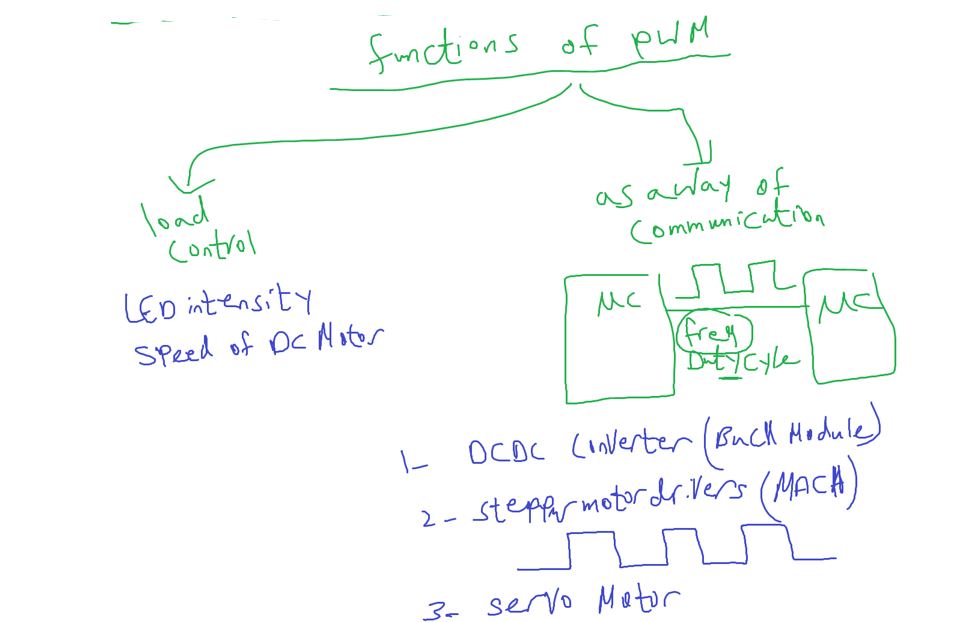 functions of PWM
load
control
LED intensity
Speed of DC Motor
as a way of
Communication
MC
MC
freq
Duty Cycle
1- DCDC Converter (Buck Module)
2- stepper motor drivers (MACH)
3- servo Motor